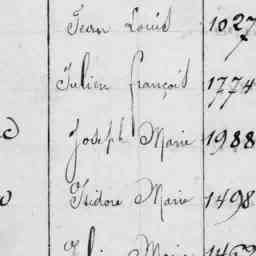 Jean Louis 1027
Julien françois 1774
Joseph Marie 1988
Isidore Marie 1498
Marie